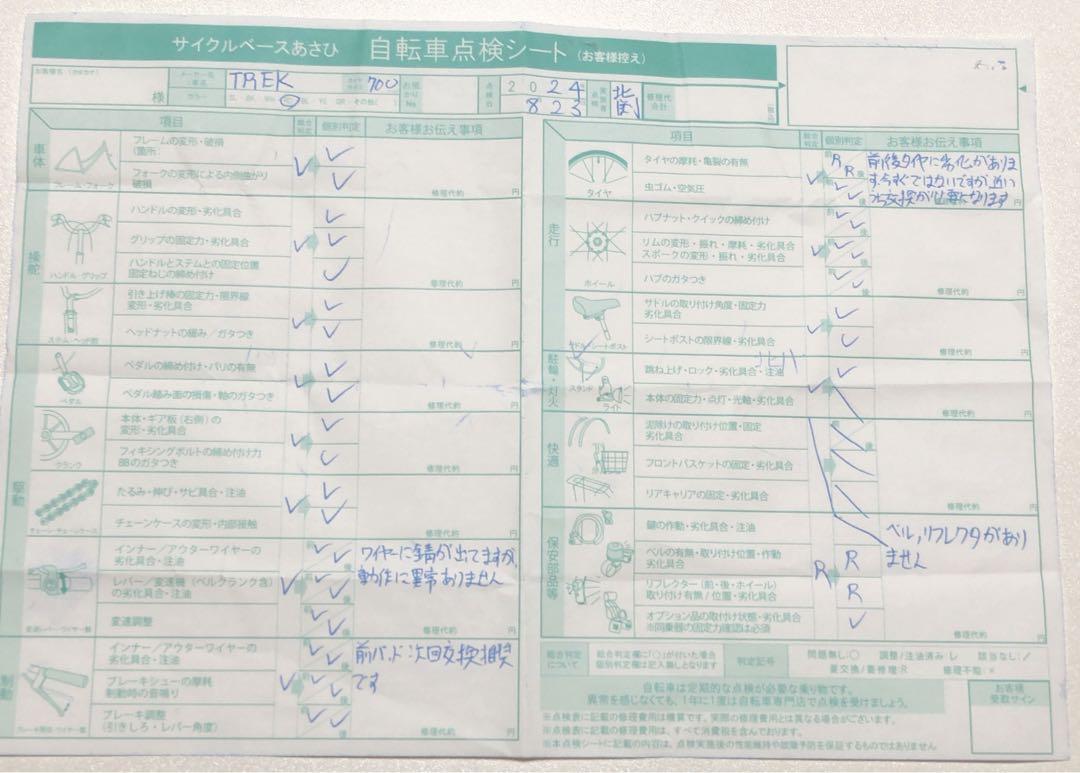 サイクルベースあさひ 自転車点検シート (お客様控え)
お客様名 (カタカナ)
様
メーカー名
・車名
TREK
タイヤ
サイズ
700
お預
かり
No.
点検日
2024
823
点検
実施者
修理代
合計
カラー
項目
総合判定
個別判定
お客様お伝え事項
車体
フレーム・フォーク
フレームの変形・破損
(箇所:
フォークの変形による内側曲がり
破損
修理代約 円
操舵
ハンドル・グリップ
ハンドルの変形・劣化具合
グリップの固定力・劣化具合
ハンドルとステムとの固定位置
固定ねじの締め付け
修理代約 円
ステム・ヘッド部
引き上げ棒の固定力・限界線
変形・劣化具合
ヘッドナットの緩み/ガタつき
修理代約 円
駆動
ペダル
ペダルの締め付け・バリの有無
ペダル踏み面の損傷・軸のガタつき
修理代約 円
クランク
本体・ギア板(右側)の
変形・劣化具合
フィキシングボルトの締め付け力
BBのガタつき
修理代約 円
チェーン・チェーンケース
たるみ・伸び・サビ具合・注油
チェーンケースの変形・内部接触
修理代約 円
インナー/アウターワイヤーの
劣化具合・注油
レバー/変速機(ベルクランク含)
の劣化具合・注油
変速調整
ワイヤーに錆が出てますが、
動作に異常ありません
修理代約 円
制動
インナー/アウターワイヤーの
劣化具合・注油
ブレーキシューの摩耗
制動時の音鳴り
ブレーキ調整
(引きしろ・レバー角度)
前パッド次回交換推奨
です
修理代約 円
項目
総合判定
個別判定
お客様お伝え事項
走行
タイヤ
タイヤの摩耗・亀裂の有無
虫ゴム・空気圧
R
R
前後タイヤに劣化がありま
す。今すぐではないですが近い
うち交換が必要になります
ホイール
ハブナット・クイックの締め付け
リムの変形・振れ・摩耗・劣化具合
スポークの変形・振れ・劣化具合
ハブのガタつき
修理代約 円
サドル・シートポスト
サドルの取り付け角度・固定力
劣化具合
シートポストの限界線・劣化具合
修理代約 円
駐輪・灯火
スタンド
ライト
跳ね上げ・ロック・劣化具合・注油
本体の固定力・点灯・光軸・劣化具合
修理代約 円
快適
泥除けの取り付け位置・固定
劣化具合
フロントバスケットの固定・劣化具合
リアキャリアの固定・劣化具合
修理代約 円
保安部品等
鍵の作動・劣化具合・注油
ベルの有無・取り付け位置・作動
劣化具合
リフレクター(前・後・ホイール)
取り付け有無/位置・劣化具合
オプション品の取付け状態・劣化具合
※同乗器の固定力確認は必須
R
R
R
ベル,リフレクタがあり
ません
修理代約 円
総合判定
について
総合判定欄に「○」が付いた場合
個別判定欄は記入無しとなります
判定記号
問題無し:○ 調整/注油済み:レ 該当なし:/
要交換/要修理:R 修理不能:×
自転車は定期的な点検が必要な乗り物です。
異常を感じなくても、1年に1度は自転車専門店で点検を受けましょう。
お客様
受取サイン
※点検表に記載の修理費用は概算です。実際の修理費用とは異なる場合がございます。
※点検表に記載の修理費用は、すべて消費税を含んでおります。
※本点検シートに記載の内容は、点検実施後の性能維持や故障予防を保証するものではありません